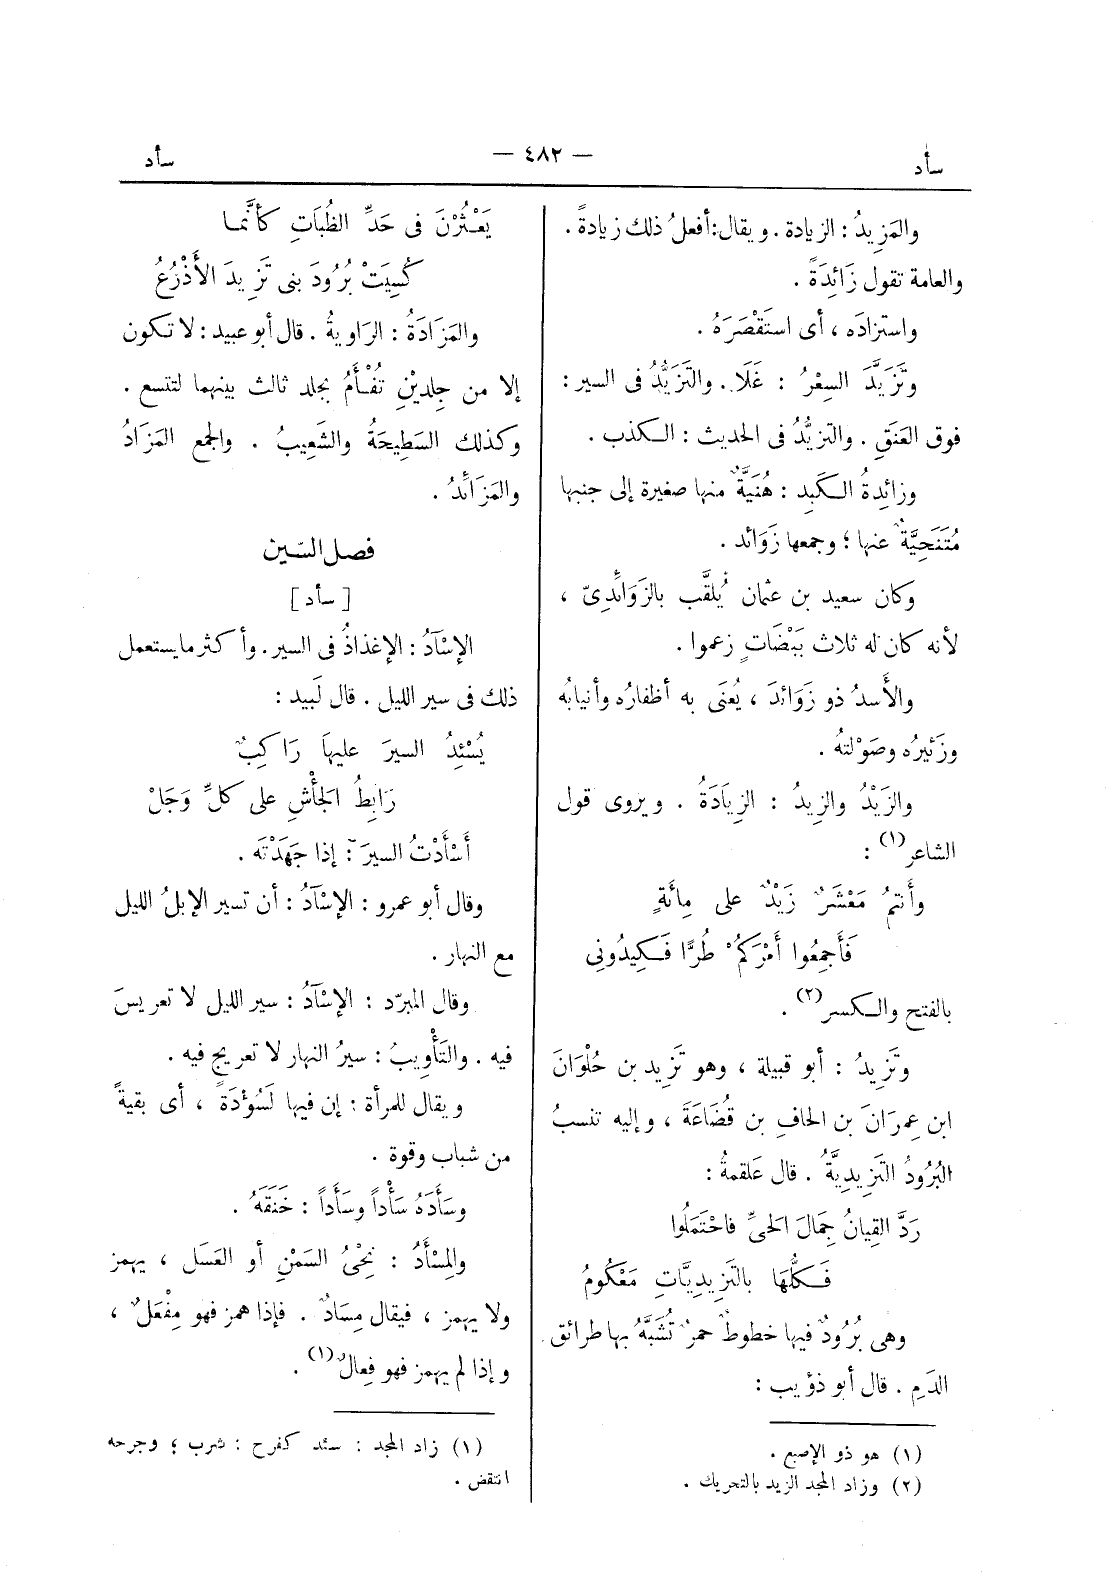 سأد
— ٤٨٢ —
سأد
والمَزِيدُ : الزيادة . ويقال : أفعلُ ذلك زيادةً .
والعامة تقول زَائِدَةً .
واستزادَه ، أى استَقْصَرَهُ .
وتَزَيَّدَ السِعْرُ : غَلَا . والتَزَيُّدُ فى السير :
فوق العَنَقِ . والتزيُّدُ فى الحديث : الكذب .
وزائِدةُ الكَبِدِ : هُنَيَّةٌ منها صغيرة إلى جنبها
مُتَنَحِّيَةٌ عنها ؛ وجمعها زَوَائد .
وكان سعيد بن عثمان يُلقَّب بالزَوَائِدِىّ ،
لأنه كان له ثلاث بَيْضَاتٍ زعموا .
والأَسدُ ذو زَوَائدَ ، يُعنَى به أظفارُه وأنيابُه
وزئيرُه وصَوْلتهُ .
والزَيْدُ والزِيدُ : الزِيَادَةُ . ويروى قول
الشاعر (١) :
وأَنتمُ مَعْشَرٌ زَيْدٌ على مِائَةٍ
فَأَجمِعُوا أَمْرَكمُ طُرًّا فَكِيدُونِى
بالفتح والكسر (٢) .
وتَزِيدُ : أبو قبيلة ، وهو تَزِيد بن حُلْوَانَ
ابن عِمرَانَ بن الحاف بن قُضَاعَةَ ، وإليه تنسبُ
البُرُودُ التَزِيدِيَّةُ . قال عَلقمةُ :
رَدَّ القِيانُ جِمَالَ الحىِّ فاحْتَمَلُوا
فَكلُّهَا بالتَزِيدِيَّاتِ مَعْكُومُ
وهى بُرُودٌ فيها خطوطٌ حمرٌ تُشَبَّهُ بها طرائق
الدَمِ . قال أبو ذؤيب :
(١) هو ذو الإصبع .
(٢) وزاد المجد الزيد بالتحريك .
يَعْثُرْنَ فى حَدِّ الظُبَاتِ كأنَّما
كُسِيَتْ بُرُودَ بنى تَزِيدَ الأَذْرُعُ
والمَزَادَةُ : الرَاوِيةُ . قال أبو عبيد : لا تكون
إلا من جِلدينِ تُفْأَمُ بجلد ثالث بينهما لتتسع .
وكذلك السَطِيحَةُ والشَعِيبُ . والجمع المَزَادُ
والمَزَائِدُ .
فصل السّين
[ سأد ]
الإسْآدُ : الإغذاذُ فى السير . وأكثر ما يستعمل
ذلك فى سير الليل . قال لَبيد :
يُسْئِدُ السيرَ عليها رَاكِبٌ
رَابِطُ الجَأْشِ على كلِّ وَجَلْ
أَسْأَدْتُ السيرَ : إذا جَهَدْتَه .
وقال أبو عمرو : الإسْآدُ : أن تسير الإبلُ الليل
مع النهار .
وقال المبرّد : الإسْآدُ : سير الليل لا تعريسَ
فيه . والتَأْوِيبُ : سيرُ النهار لا تعريج فيه .
ويقال للمرأة : إن فيها لَسُؤْدَةً ، أى بقيةً
من شباب وقوة .
وسَأَدَهُ سَأْداً وسَأَداً : خَنَقَهُ .
والمِسْأَدُ : نِحْىُ السَمْنِ أو العَسَل ، يهمز
ولا يهمز ، فيقال مِسَادٌ . فإذا همز فهو مِفْعَلٌ ،
وإذا لم يهمز فهو فِعالٌ (١) .
(١) زاد المجد : سئد كفرح : شرب ؛ وجرحه
انتقض .